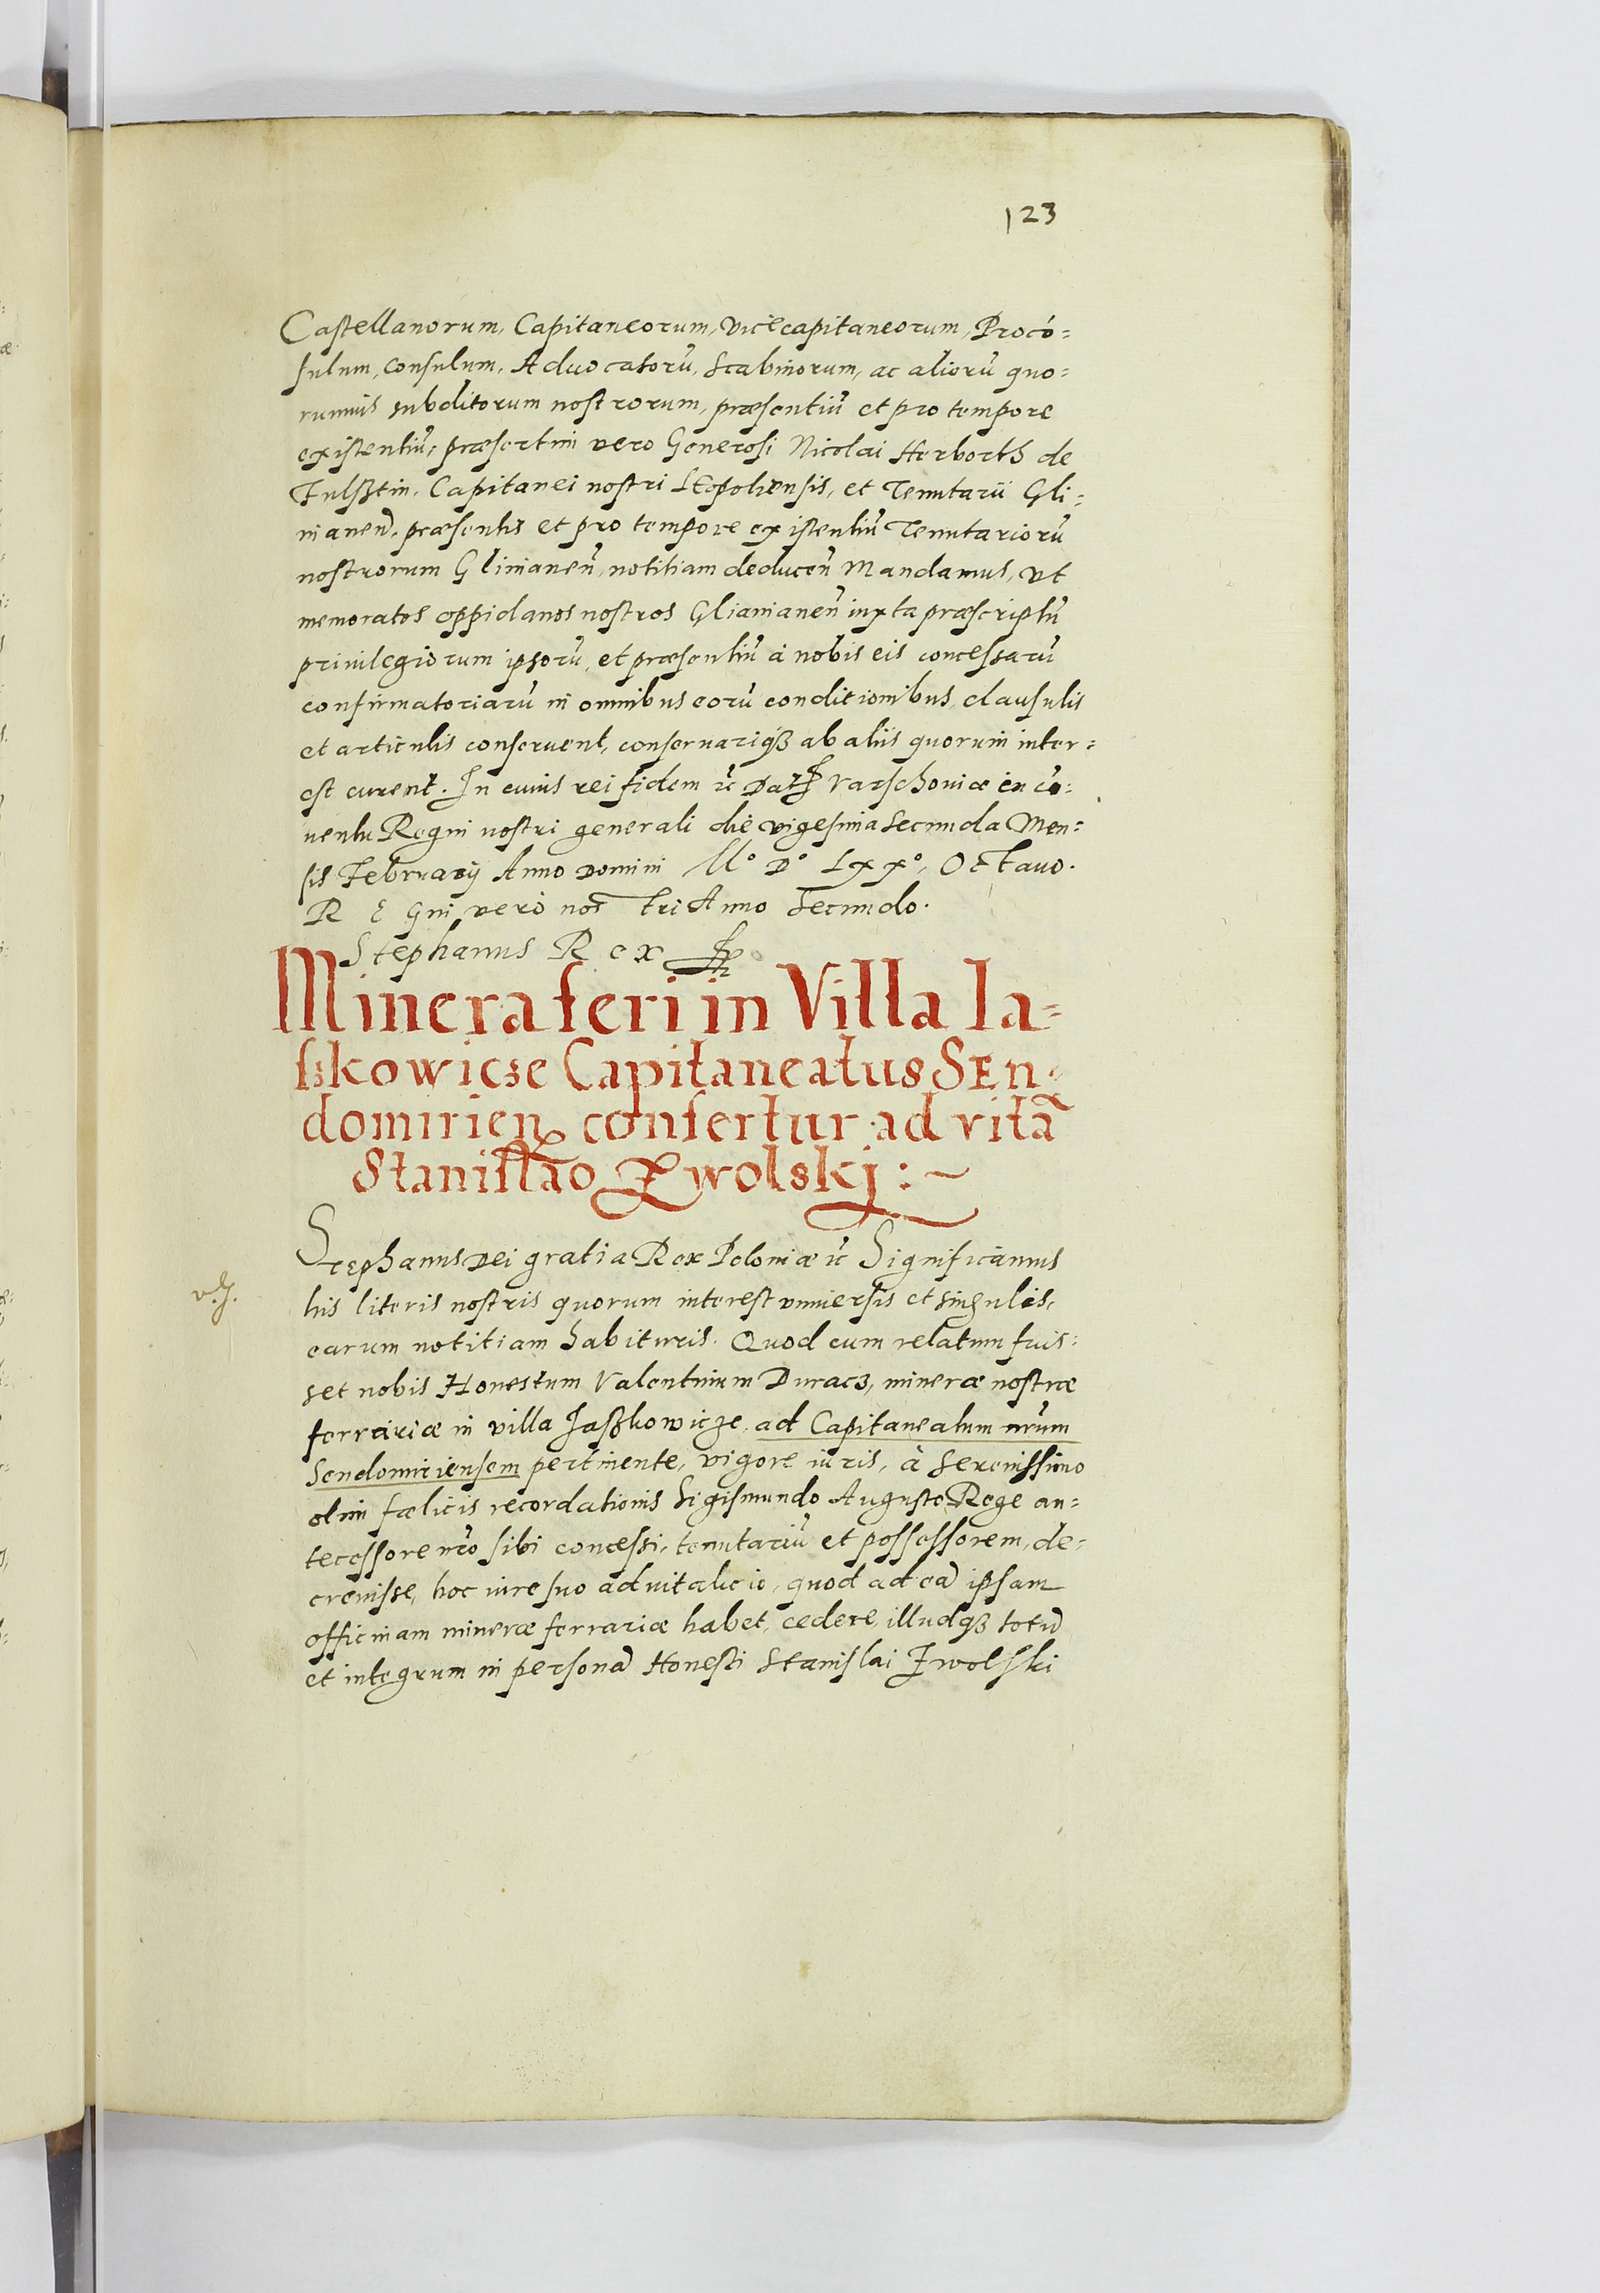 123
Castellanorum, Capitaneorum, vicecapitaneorum, Procō=
sulum, consulum, Aduocatorū, Scabinorum, ac aliorū quo=
rumuis subditorum nostrorum, præsentiū et pro tempore
existentiū, præsertim vero Generosi Nicolai Herborth de
Fulsztin, Capitanei nostri LEopoliensis, et Tenutarii Gli=
nianeñ. præsentis et pro tempore existentiū Tenutariorū
nostrorum Glinianeñ, notitiam deduceñ Mandamus, vt
memoratos oppidanos nostros Glianianeñ iuxta præscriptū
priuilegiorum ipsorū, et præsentiū à nobis eis concessarū
confirmatoriarū in omnibus eorū conditionibus, clausulis
et articulis conseruent, conseruariqȝ ab aliis quorum inter=
est curent. In cuius rei fidem ꝛc Dat Varschouiæ in cō=
uentu Regni nostri generali die vigesima secunda Men=
sis February Anno Domini M° D° LXX°, Octauo.
REGni verò nostri Anno Secundo.
Stephanus Rex
Minera feri in Villa Ia=
szkowicze Capitaneatus SEn=
domirien confertur ad vitā
Stanislao Zwolskj :~
Stephanus Dei gratia Rex Poloniæ ꝛc Significamus
his literis nostris quorum interest vniuersis et singulis,
earum notitiam habituris. Quod cum relatum fuis=
set nobis Honestum Valentinum Duracz, mineræ nostræ
ferrariæ in villa Jaszkowicze, ad Capitaneatum nrūm
Sendomiriensem pertinente, vigore iuris, à Serenissimo
olim fælicis recordationis Sigismundo Augusto Rege an=
tecessore nrō sibi concessi, tenutariū et possessorem, de=
creuisse, hoc iure suo aduitalicio, quod ad eā ipsam
officinam mineræ ferrariæ habet, cedere, illudqȝ totū
et integrum in personā Honesti Stanislai Zwolski